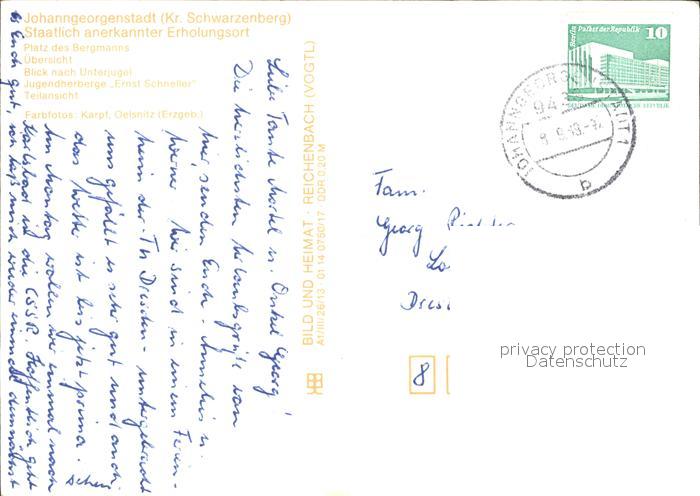 Johanngeorgenstadt (Kr. Schwarzenberg)
Staatlich anerkannter Erholungsort
Platz des Bergmanns
Übersicht
Blick nach Unterjugel
Jugendherberge „Ernst Schneller"
Teilansicht
Farbfotos: Karpf, Oelsnitz (Erzgeb.)
Liebe Tante u. Onkel Georg!
Die herzlichsten Urlaubsgrüße von
hier senden Euch Annelies u.
Werner. Wir sind in einem Ferien-
heim der TU Dresden - untergebracht
uns gefällt es sehr gut und auch
das Wetter ist bis jetzt prima.
Am Montag wollen wir einmal nach
Karlsbad in die CSSR. Hoffentlich geht
es Euch gut, wir
BILD UND HEIMAT · REICHENBACH (VOGTL)
A1/III/26/13 01 14 0750/17 DDR 0,20 M
Berlin Palast der Republik
10
DEUTSCHE DEMOKRATISCHE REPUBLIK
JOHANNGEORGENSTADT 1
943
b
Fam.
Georg
8
privacy protection
Datenschutz